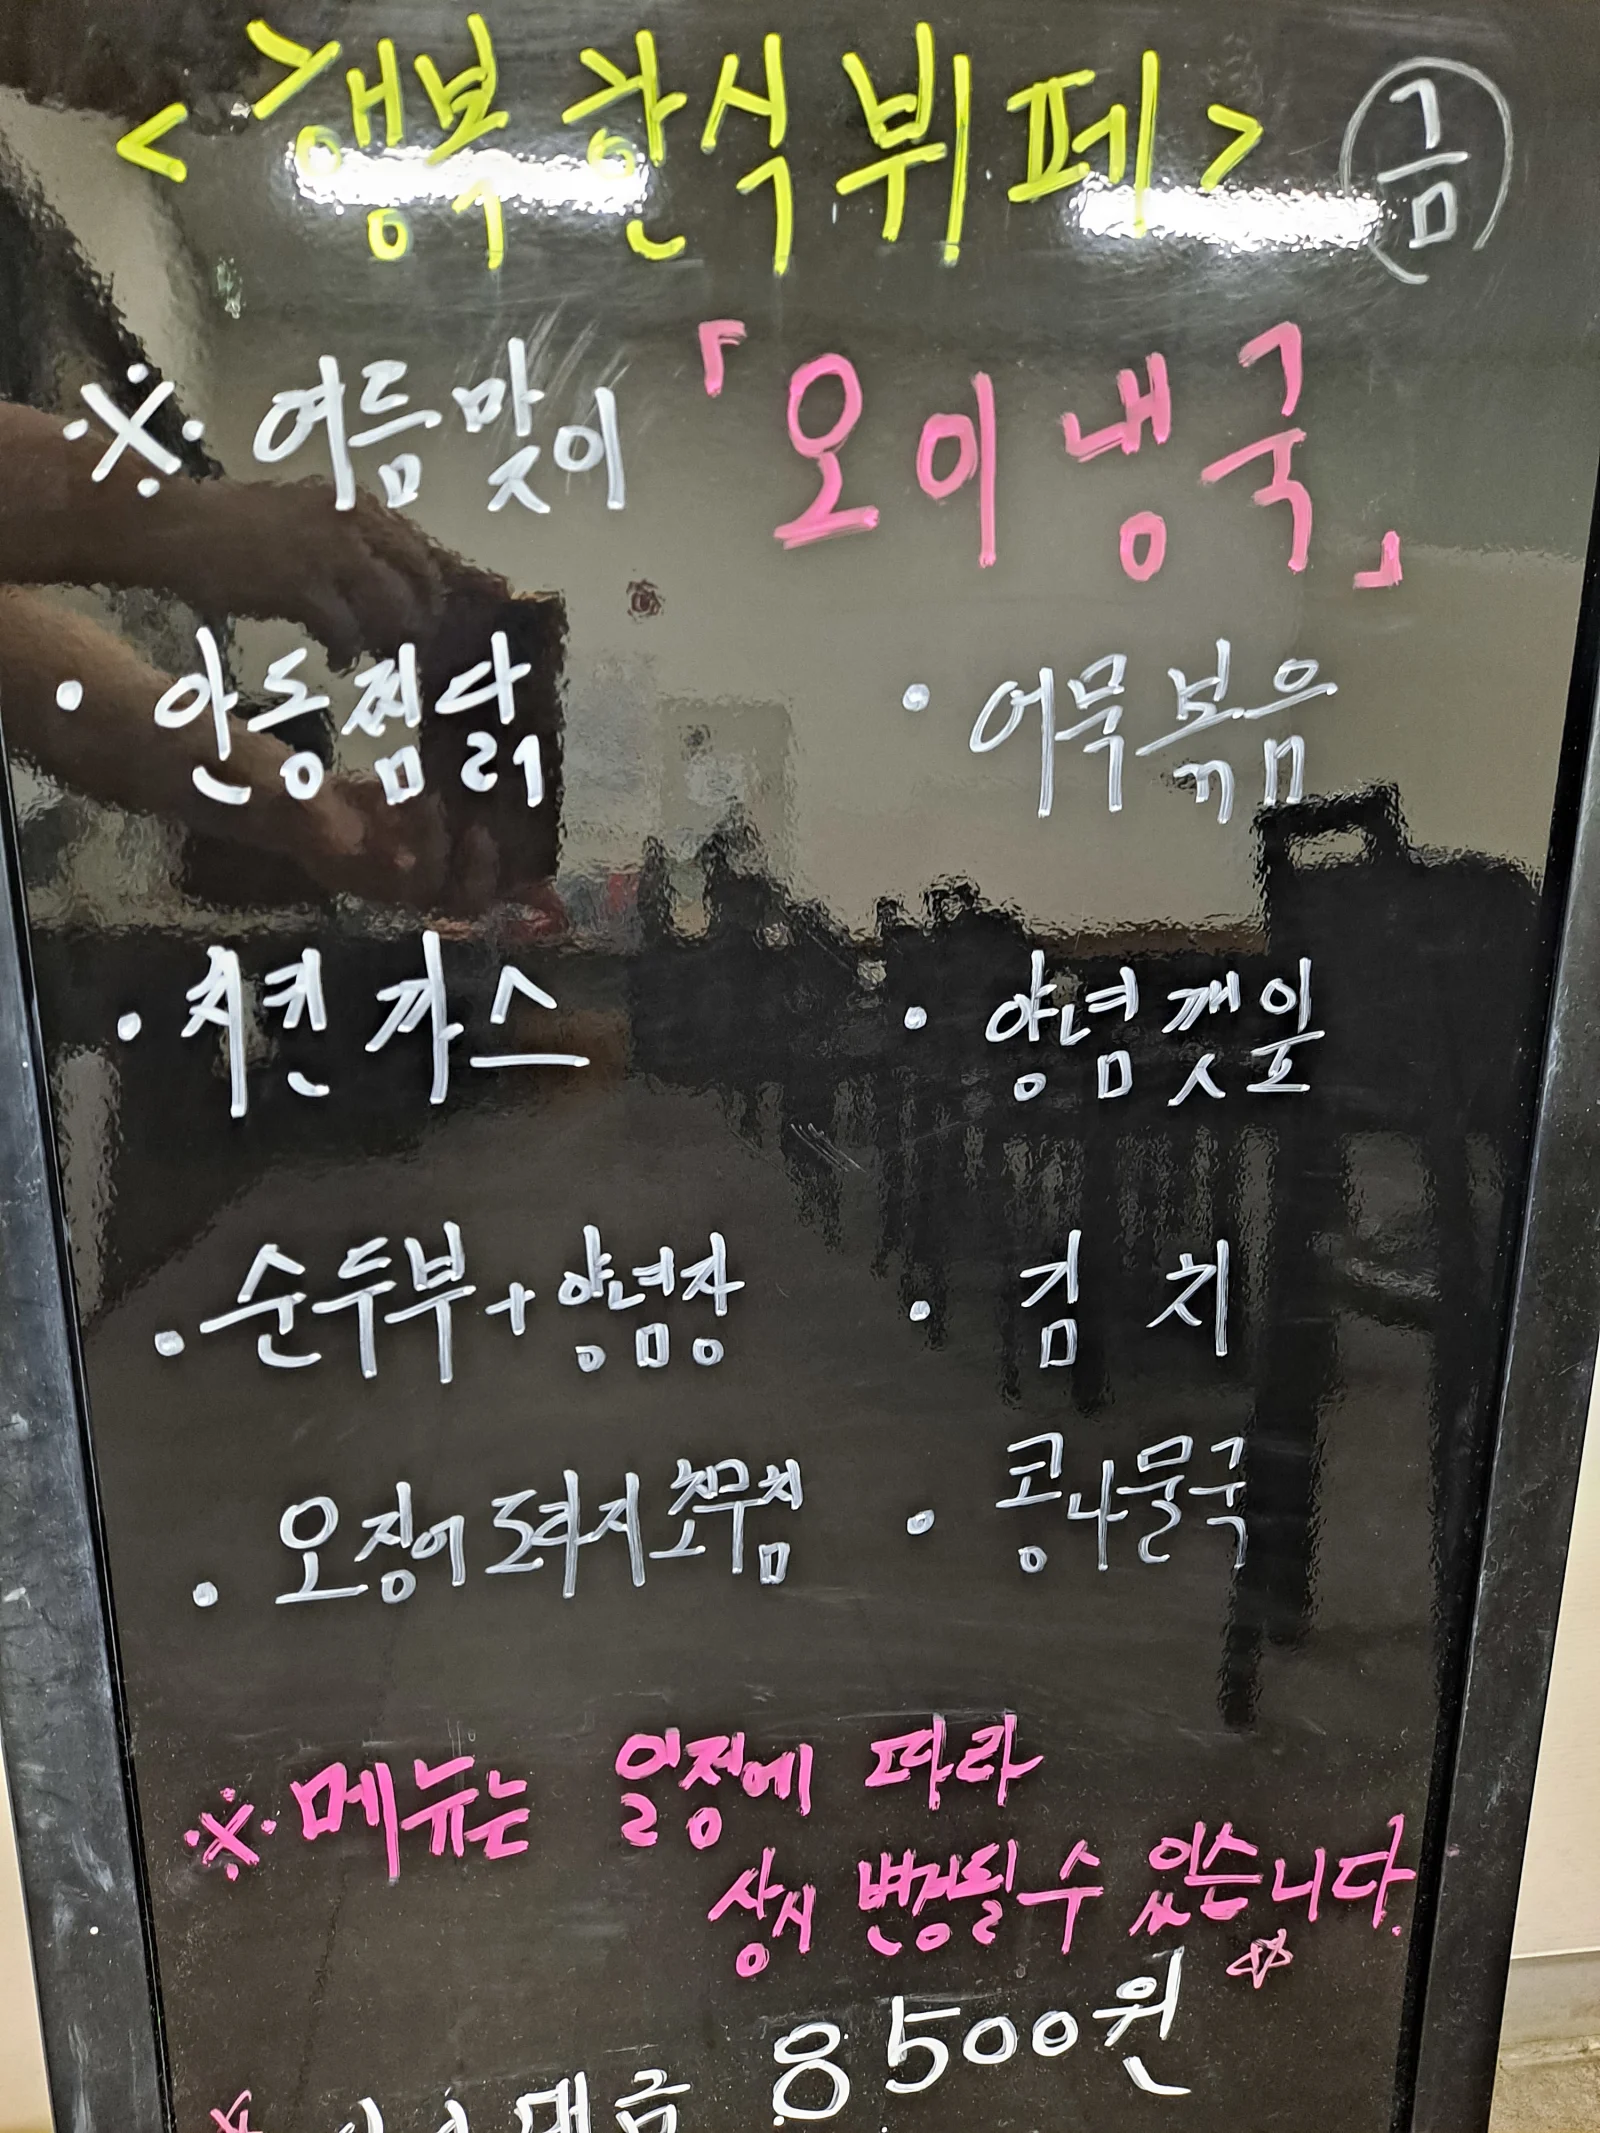 <행복 한식 뷔페> 금
※ 여름맞이 「오이냉국」
· 안동찜닭
· 어묵볶음
· 치킨까스
· 양념깻잎
· 순두부+양념장
· 김 치
· 오징어도라지초무침
· 콩나물국
※ 메뉴는 일정에 따라
상시 변경될 수 있습니다.
☆
8500원